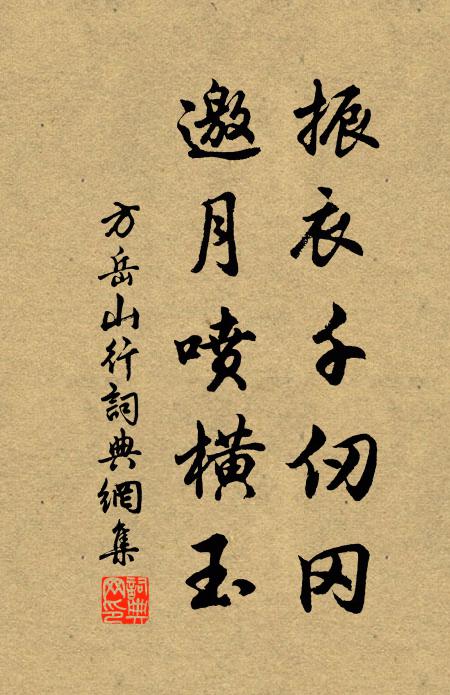 振衣千仞冈
邀月喷横玉
方岳山行詞典網集
詞典网印